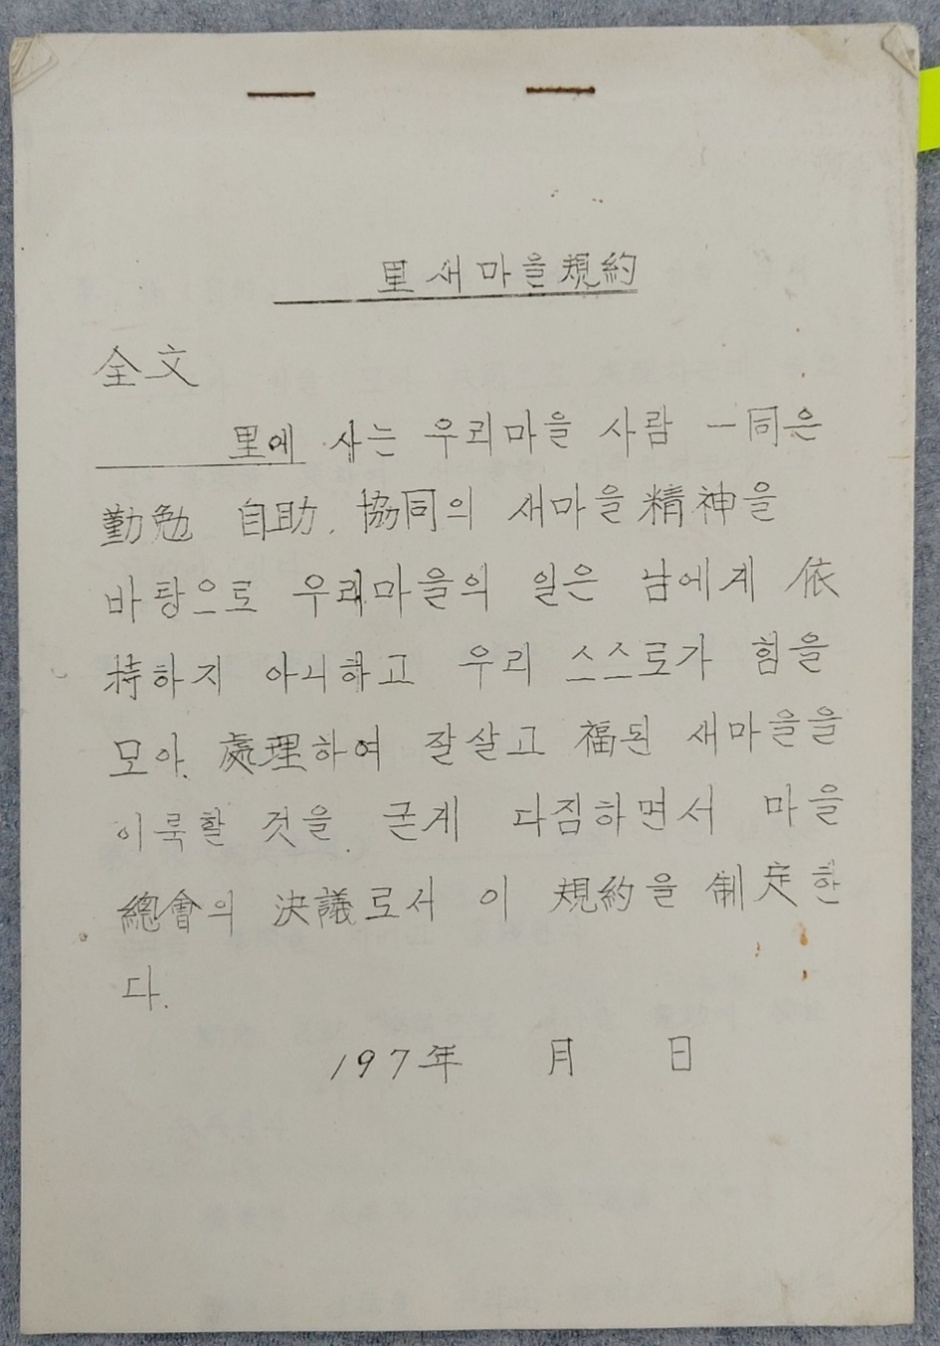 里새마을規約
全文
里에 사는 우리마을 사람 一同은
勤勉 自助. 協同의 새마을精神을
바탕으로 우리마을의 일은 남에게 依
持하지 아니하고 우리 스스로가 힘을
모아. 處理하여 잘살고 福된 새마을을
이룩할 것을 굳게 다짐하면서 마을
總會의 決議로서 이 規約을 制定한
다.
197年 月 日